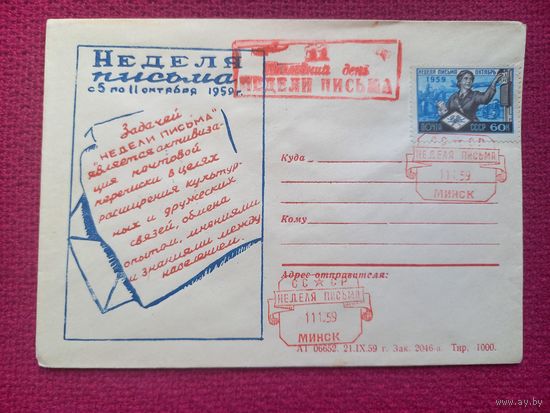 НЕДЕЛЯ
письма
с 5 по 11 октября 1959 г.
Задачей
"НЕДЕЛИ ПИСЬМА"
является активиза-
ция почтовой
переписки в целях
расширения культур-
ных и дружеских
связей, обмена
опытом, мнениями
и знаниями между
населением.
11
день
НЕДЕЛИ ПИСЬМА
НЕДЕЛЯ ПИСЬМА ОКТЯБРЬ
1959
ПОЧТА СССР 60К
СССР
НЕДЕЛЯ ПИСЬМА
111.59
МИНСК
Куда
Кому
Адрес отправителя:
СССР
НЕДЕЛЯ ПИСЬМА
111.59
МИНСК
АТ 06652. 21.IX.59 г. Зак. 2046-а. Тир. 1000.
www.ay.by